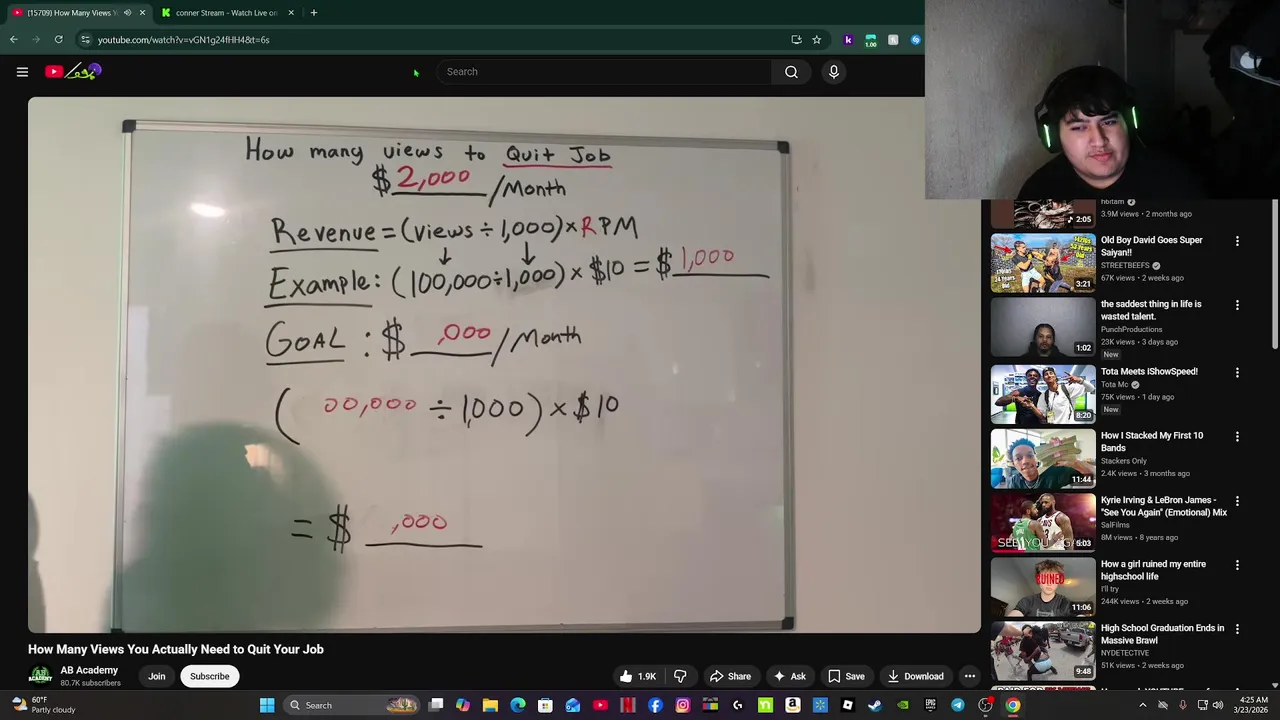 (15709) How Many Views Y
conner Stream - Watch Live on
youtube.com/watch?v=vGN1g24fHH4&t=6s
1.00
Search
How many views to Quit Job
$ 2,000 /Month
Revenue = (views ÷ 1,000) × RPM
Example: (100,000÷1,000) × $10 = $ 1,000
GOAL : $ ,000 /Month
( 00,000 ÷ 1,000) × $10
= $ ,000
How Many Views You Actually Need to Quit Your Job
AB Academy
80.7K subscribers
Join
Subscribe
Share
Ask
Save
Download
2:05
3.9M views • 2 months ago
3:21
Old Boy David Goes Super
Saiyan!!
STREETBEEFS
67K views • 2 weeks ago
1:02
the saddest thing in life is
wasted talent.
PunchProductions
23K views • 3 days ago
New
8:20
Tota Meets IShowSpeed!
Tota Mc
75K views • 1 day ago
New
11:44
How I Stacked My First 10
Bands
Stackers Only
2.4K views • 3 months ago
SEE YOU
5:03
Kyrie Irving & LeBron James -
"See You Again" (Emotional) Mix
SalFilms
8M views • 8 years ago
RUINED
11:06
How a girl ruined my entire
highschool life
I'll try
244K views • 2 weeks ago
9:48
High School Graduation Ends in
Massive Brawl
NYDETECTIVE
51K views • 2 weeks ago
60°F
Partly cloudy
Search
4:25 AM
3/23/2026